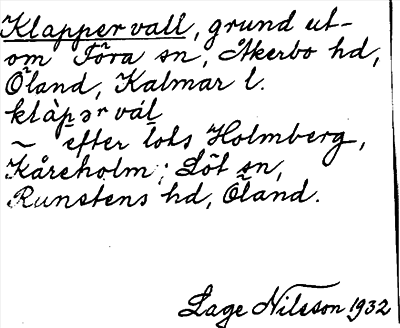 Klappervall, grund ut-
om Föra sn, Åkerbo hd,
Öland, Kalmar l.
klàpər vál
~ efter lots Holmberg,
Kåreholm; Löt sn,
Runstens hd, Öland.
Lage Nilsson 1932